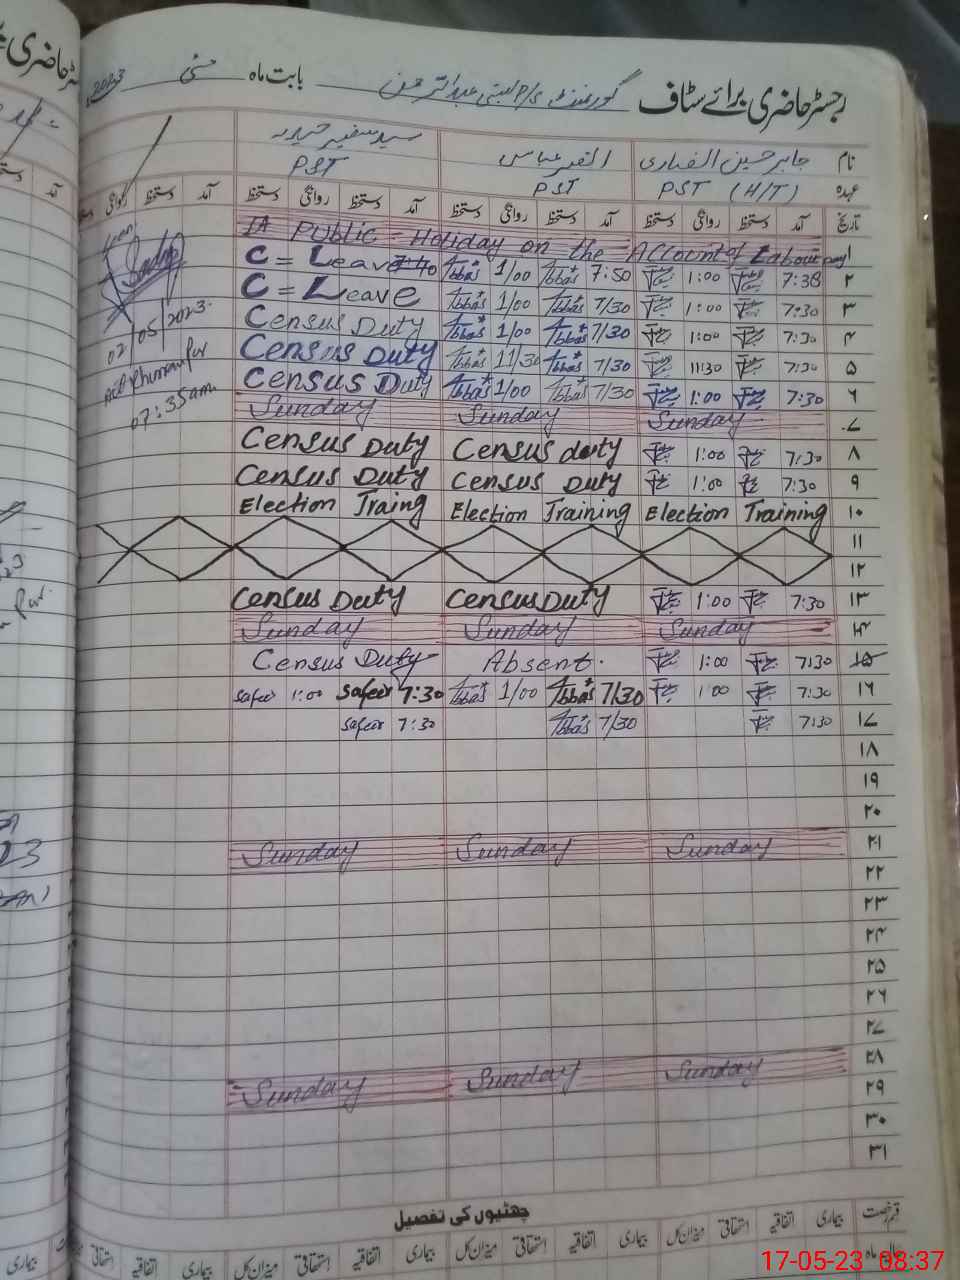 رجسٹر حاضری برائے سٹاف گورنمنٹ P/S بستی عبدالرحمن بابت ماہ مئی 2023
نام جابر حسین الغفاری الفر عباس سید سفیر حیدر
عہدہ PST (H/T) PST PST
تاریخ آمد دستخط روانگی دستخط آمد دستخط روانگی دستخط آمد دستخط روانگی دستخط آمد دستخط روانگی
PUBLIC - Holiday on the Account of Labour day
C = Leave 7:40 Abbas 1/00 Abbas 7:50 1:00 7:38 ۲
C = Leave Abbas 1/00 Abbas 7/30 1:00 7:30 ۳
Census Duty Abbas 1/00 Abbas 7/30 1:00 7:30 ۴
Census Duty Abbas 11/30 Abbas 7/30 11:30 7:30 ۵
Census Duty Abbas 1/00 Abbas 7/30 1:00 7:30 ۶
Sunday Sunday Sunday ۷
02/05/2023
07:35am
Census Duty Census duty 1:00 7:30 ۸
Census Duty Census Duty 1:00 7:30 ۹
Election Traing Election Training Election Training ۱۰
۱۱
۱۲
Census Duty Census Duty 1:00 7:30 ۱۳
Sunday Sunday Sunday ۱۴
Census Duty Absent. 1:00 7:30 ۱۵
Safeer 1:00 Safeer 7:30 Abbas 1/00 Abbas 7/30 1:00 7:30 ۱۶
Safeer 7:30 Abbas 7/30 7:30 ۱۷
۱۸
۱۹
۲۰
Sunday Sunday Sunday ۲۱
۲۲
۲۳
۲۴
۲۵
۲۶
۲۷
Sunday Sunday Sunday ۲۸
۲۹
۳۰
۳۱
چھٹیوں کی تفصیل
قسم رخصت بیماری اتفاقیہ استحقاقی میزان کل بیماری اتفاقیہ استحقاقی میزان کل بیماری اتفاقیہ استحقاقی میزان کل بیماری اتفاقیہ استحقاقی
17-05-23 08:37